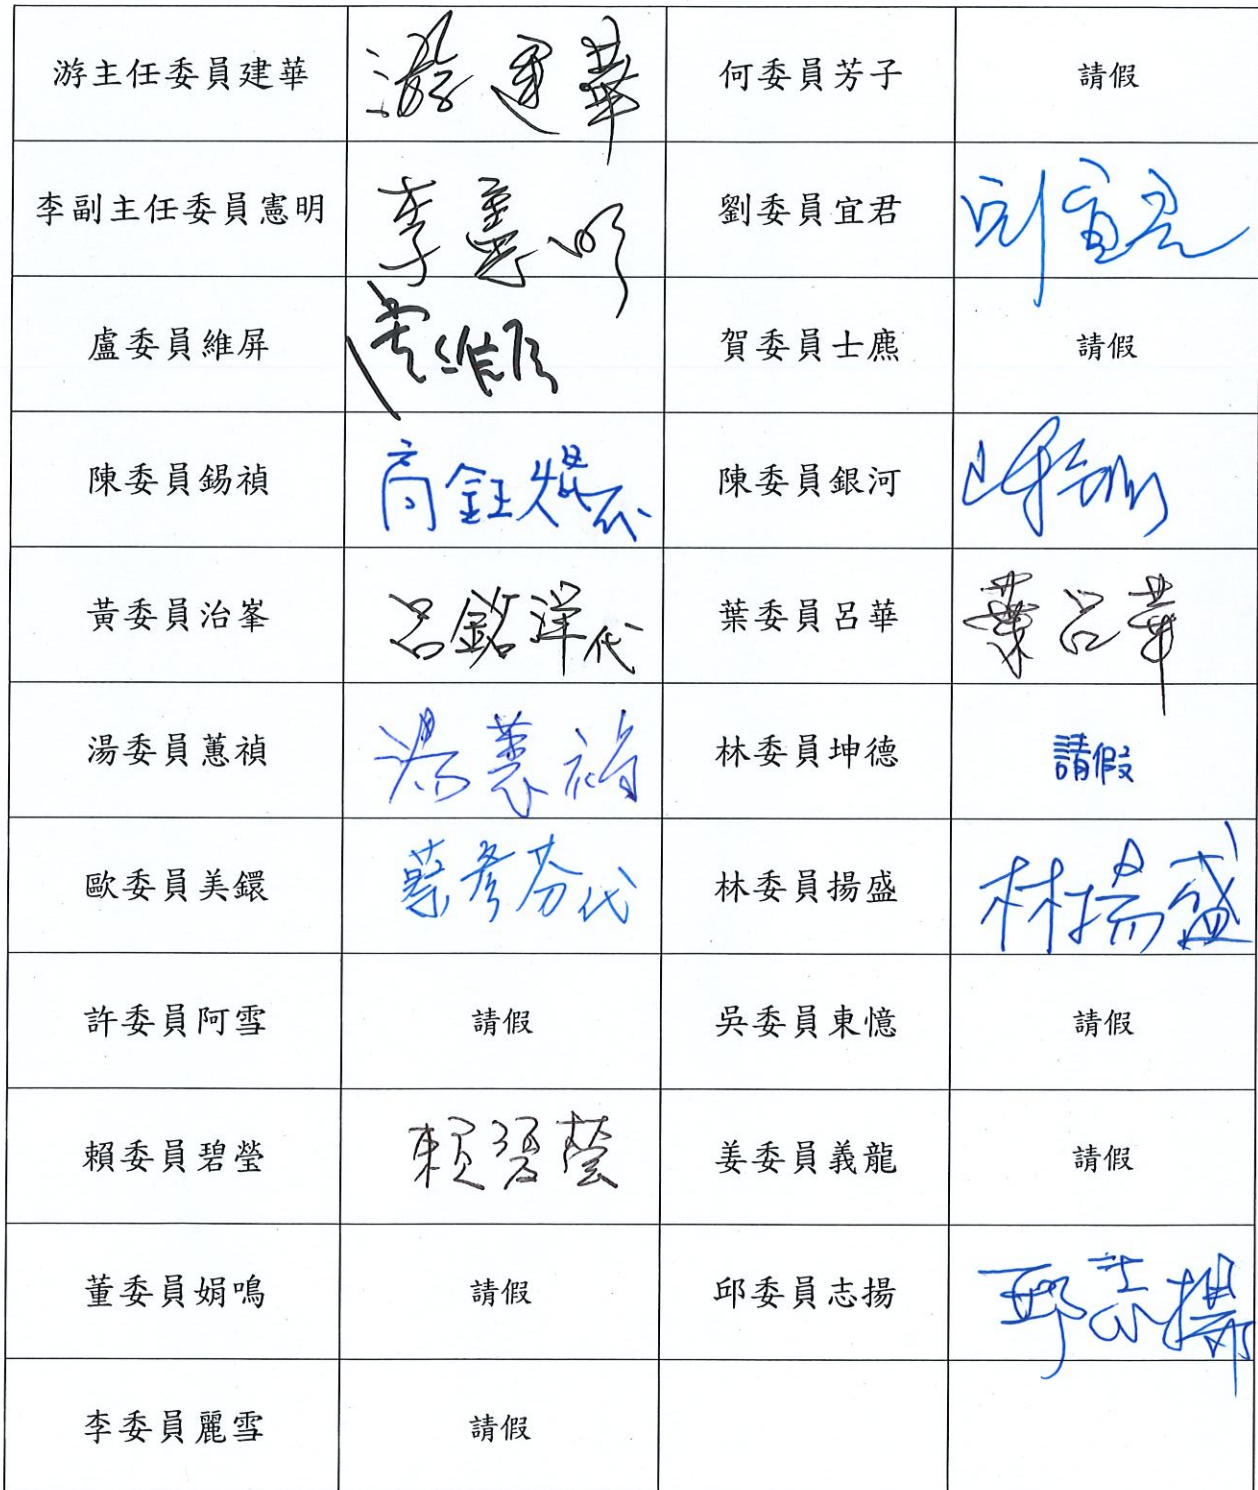 游主任委員建華 游建華 何委員芳子 請假
李副主任委員憲明 李憲明 劉委員宜君 劉宜君
盧委員維屏 盧維屏 賀委員士麃 請假
陳委員錫禎 高鈺焜代 陳委員銀河 陳銀河
黃委員治峯 呂銘洋代 葉委員呂華 葉呂華
湯委員蕙禎 湯蕙禎 林委員坤德 請假
歐委員美鐶 蔡彥芬代 林委員揚盛 林揚盛
許委員阿雪 請假 吳委員東憶 請假
賴委員碧瑩 賴碧瑩 姜委員義龍 請假
董委員娟鳴 請假 邱委員志揚 邱志揚
李委員麗雪 請假